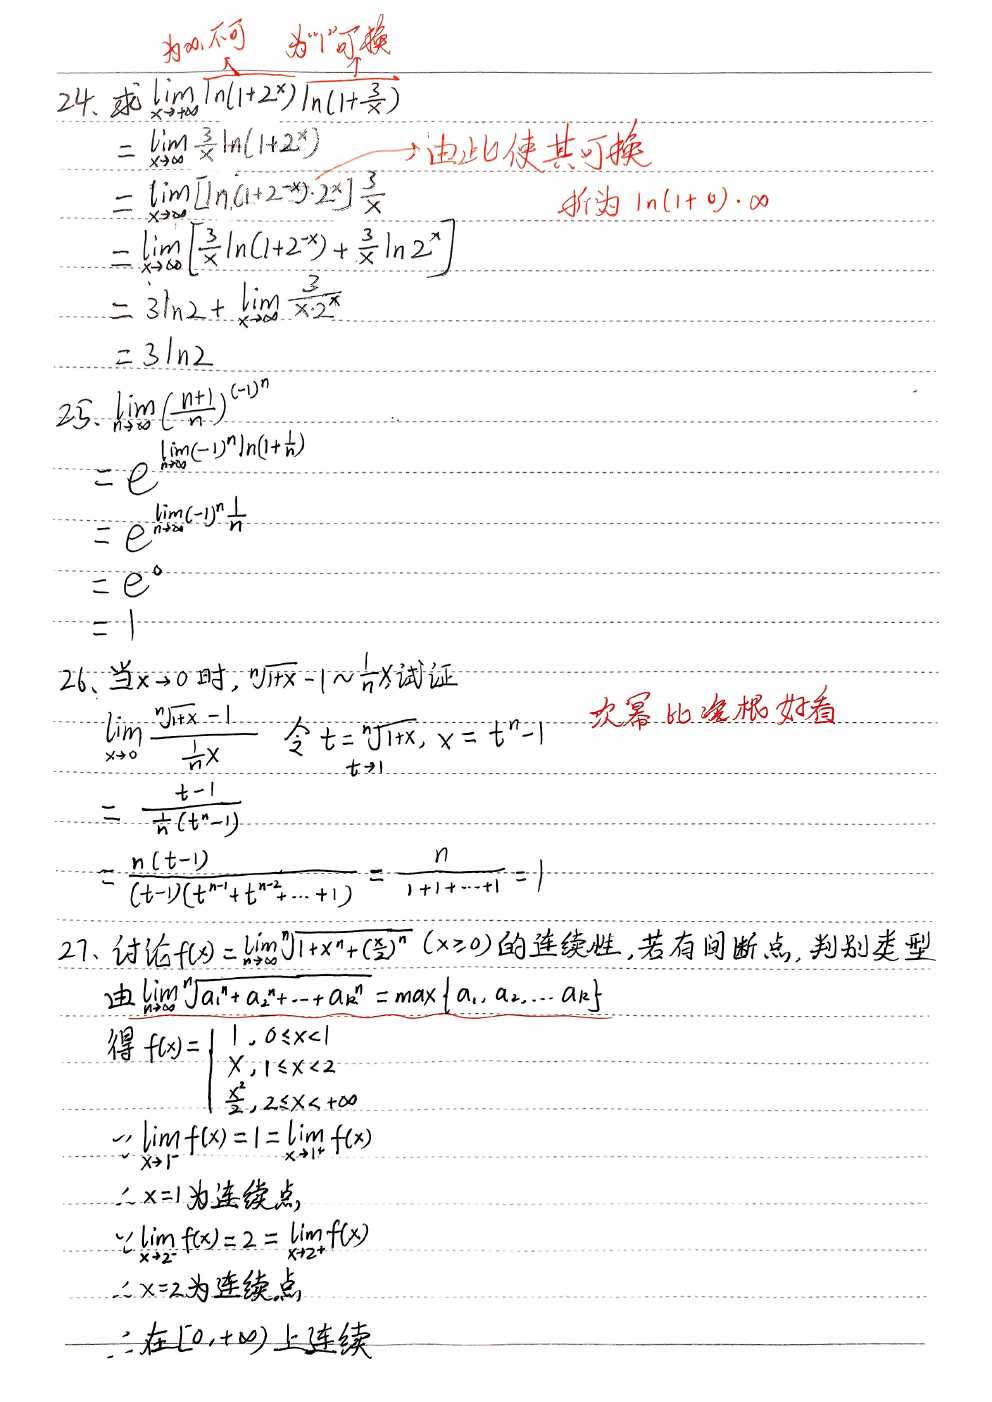 为∞,不可 为"1"可换
24、求 lim x→+∞ ln(1+2^x) ln(1+3/x)
= lim x→∞ 3/x ln(1+2^x)
→由此使其可换
= lim x→∞ [ln(1+2^-x)·2^x] 3/x
折为 ln(1+0)·∞
= lim x→∞ [3/x ln(1+2^-x) + 3/x ln2^x]
= 3ln2 + lim x→∞ 3/(x·2^x)
= 3ln2
25、lim n→∞ ((n+1)/n)^(-1)^n
= e^(lim n→∞ (-1)^n ln(1+1/n))
= e^(lim n→∞ (-1)^n 1/n)
= e^0
= 1
26、当x→0时, ⁿ√(1+x) -1 ~ 1/n x 试证
次幂比次根好看
lim x→0 (ⁿ√(1+x) -1)/(1/n x) 令 t = ⁿ√(1+x), x = t^n -1
t→1
= (t-1)/(1/n (t^n-1))
= n(t-1)/((t-1)(t^(n-1)+t^(n-2)+…+1)) = n/(1+1+…+1) = 1
27、讨论f(x) = lim n→∞ ⁿ√(1+x^n+(x²/2)^n) (x≥0)的连续性,若有间断点,判别类型
由 lim n→∞ ⁿ√(a₁^n+a₂^n+…+aₖ^n) = max{a₁, a₂,… aₖ}
得 f(x) = { 1, 0≤x<1
x, 1≤x<2
x²/2, 2≤x<+∞
∵ lim x→1⁻ f(x) = 1 = lim x→1⁺ f(x)
∴ x=1为连续点,
∵ lim x→2⁻ f(x) = 2 = lim x→2⁺ f(x)
∴ x=2为连续点
∴在[0,+∞)上连续